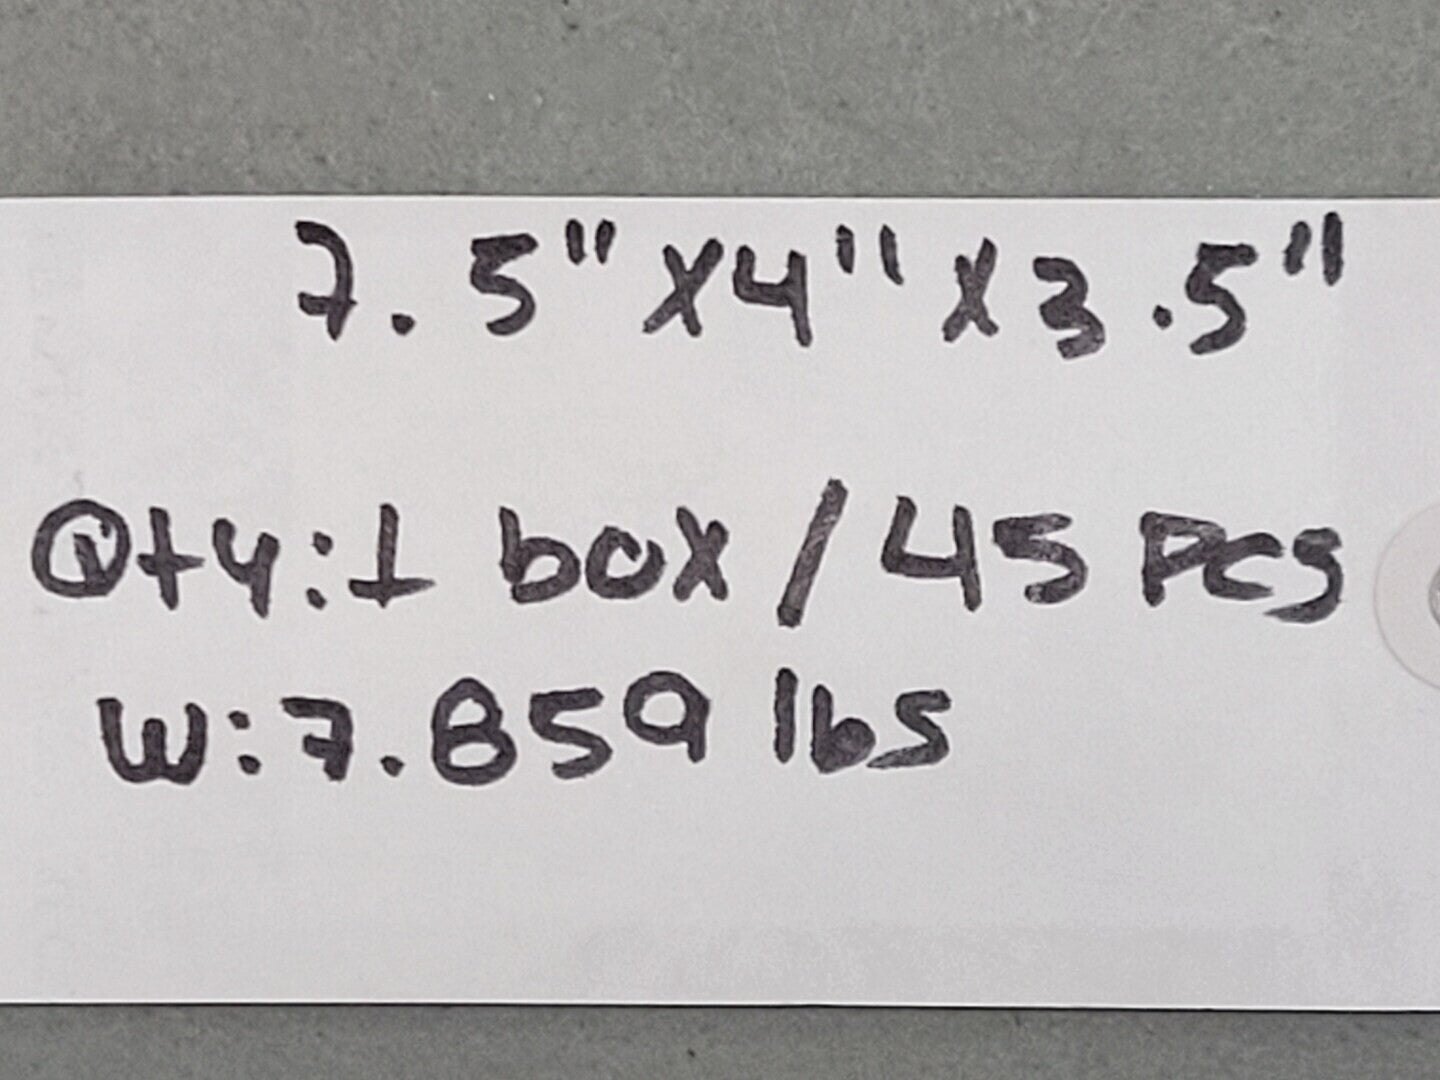 7.5" X4" X3.5"
Qty:1 box/45 Pcs
W:7.859 lbs